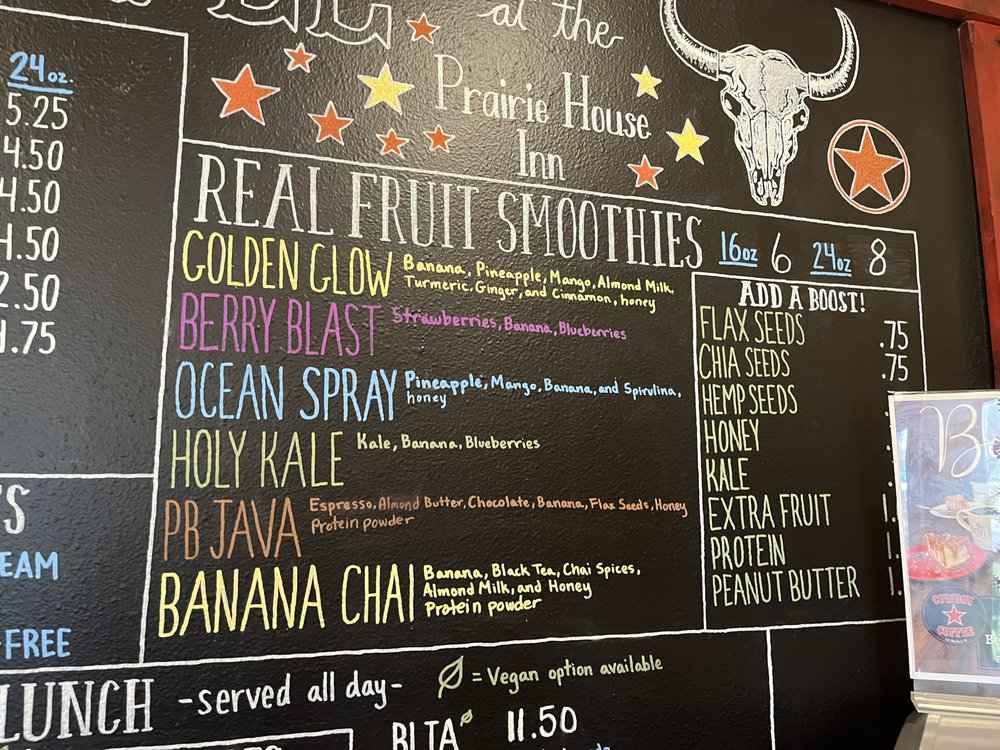 at the
Prairie House
Inn
24 oz.
5.25
4.50
4.50
4.50
2.50
4.75
REAL FRUIT SMOOTHIES 16oz 6 24oz 8
GOLDEN GLOW Banana, Pineapple, Mango, Almond Milk,
Turmeric, Ginger, and Cinnamon, honey
BERRY BLAST Strawberries, Banana, Blueberries
OCEAN SPRAY Pineapple, Mango, Banana, and Spirulina,
honey
HOLY KALE Kale, Banana, Blueberries
PB JAVA Espresso, Almond Butter, Chocolate, Banana, Flax Seeds, Honey
Protein powder
BANANA CHAI Banana, Black Tea, Chai Spices,
Almond Milk, and Honey
Protein powder
ADD A BOOST!
FLAX SEEDS .75
CHIA SEEDS .75
HEMP SEEDS
HONEY
KALE
EXTRA FRUIT 1.
PROTEIN 1.
PEANUT BUTTER 1.
'S
EAM
-FREE
LUNCH -served all day- = Vegan option available
BLTA 11.50
COWBOY
COFFEE